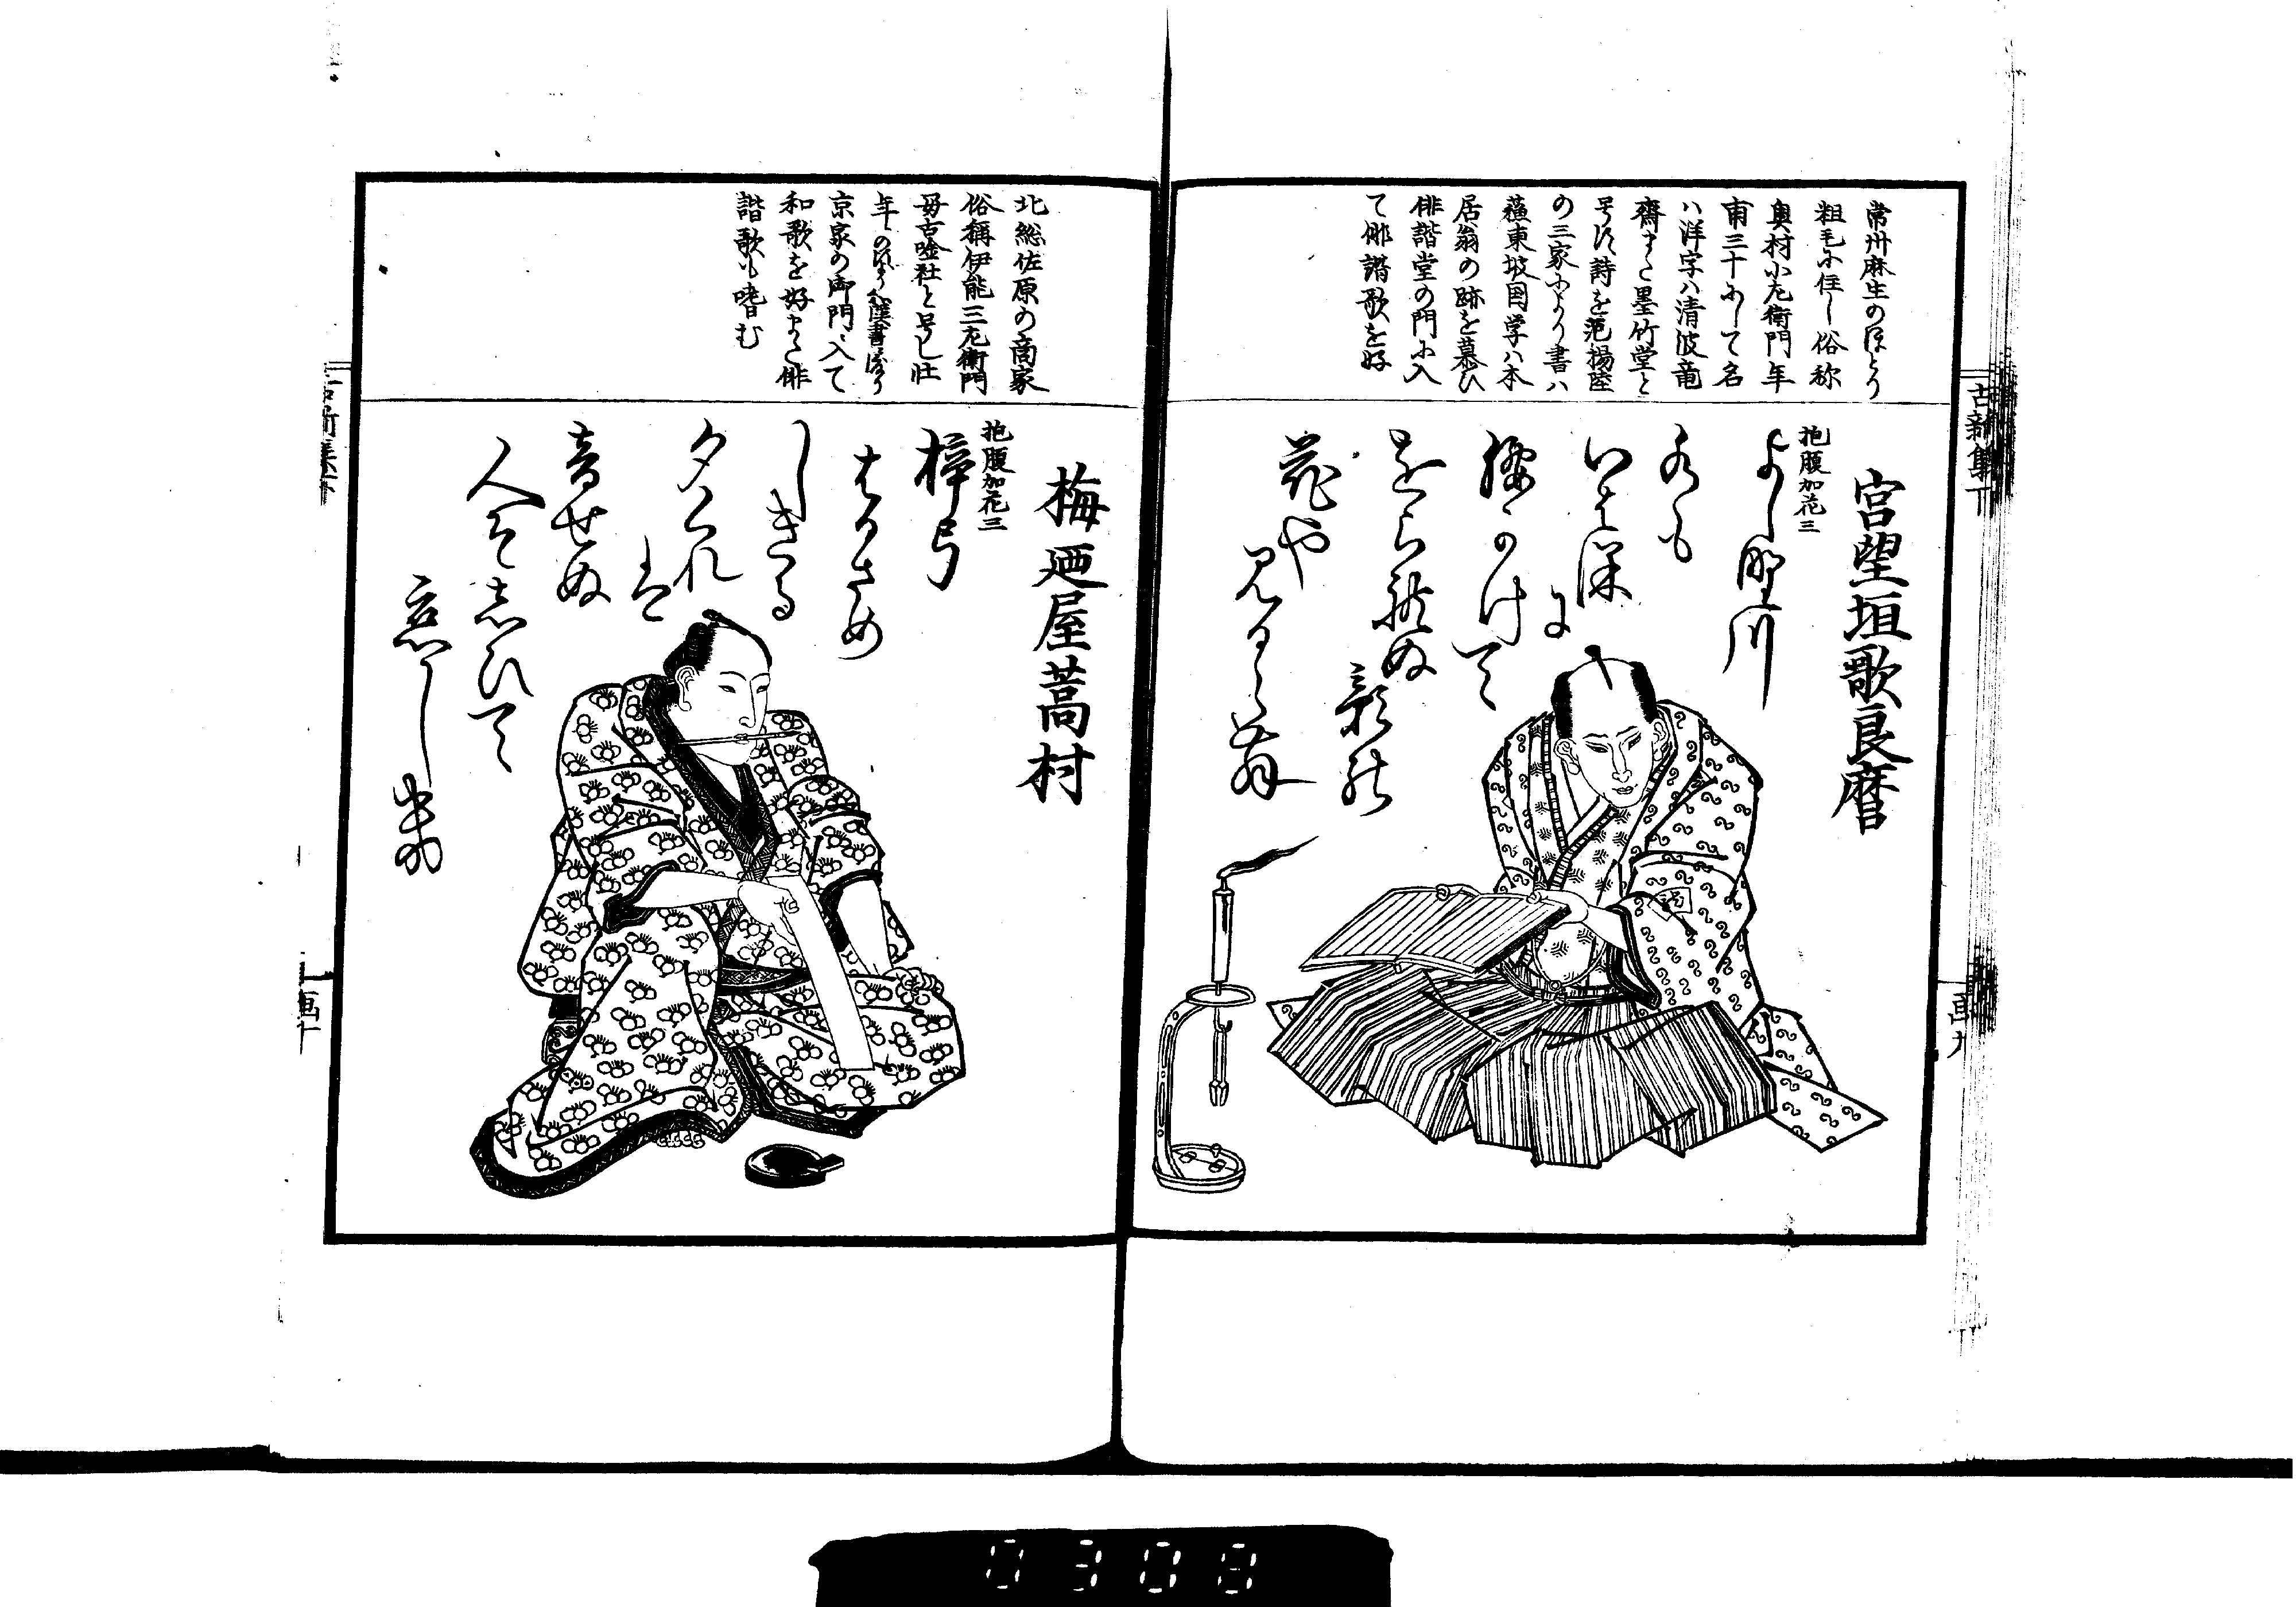 常州麻生のほとり
粗毛に住し俗称
奥村小左衛門年
甫三十にして名
ハ洋字ハ清波竜
齋また墨竹堂と
号す詩を范楊陸
の三家により書ハ
蘓東坡国学ハ本
居翁の跡を慕ひ
俳諧堂の門に入
て俳諧歌を好
宮望垣歌良麿
抱腹加花三
よし野川
水も
いは浪
に
腰かけて
をられぬ
影の
花や
見る
らん
古新集下
北総佐原の商家
俗稱伊能三左衛門
毋古唫社と号し壮
年のころより漢書
京家の御門ニ入て
和歌を好また俳
諧歌も嗜む
梅廼屋蒿村
抱腹加花三
梓弓
はるさめ
しきる
夕くれ
は
音せぬ
人そ
恋しかり
画十
0308